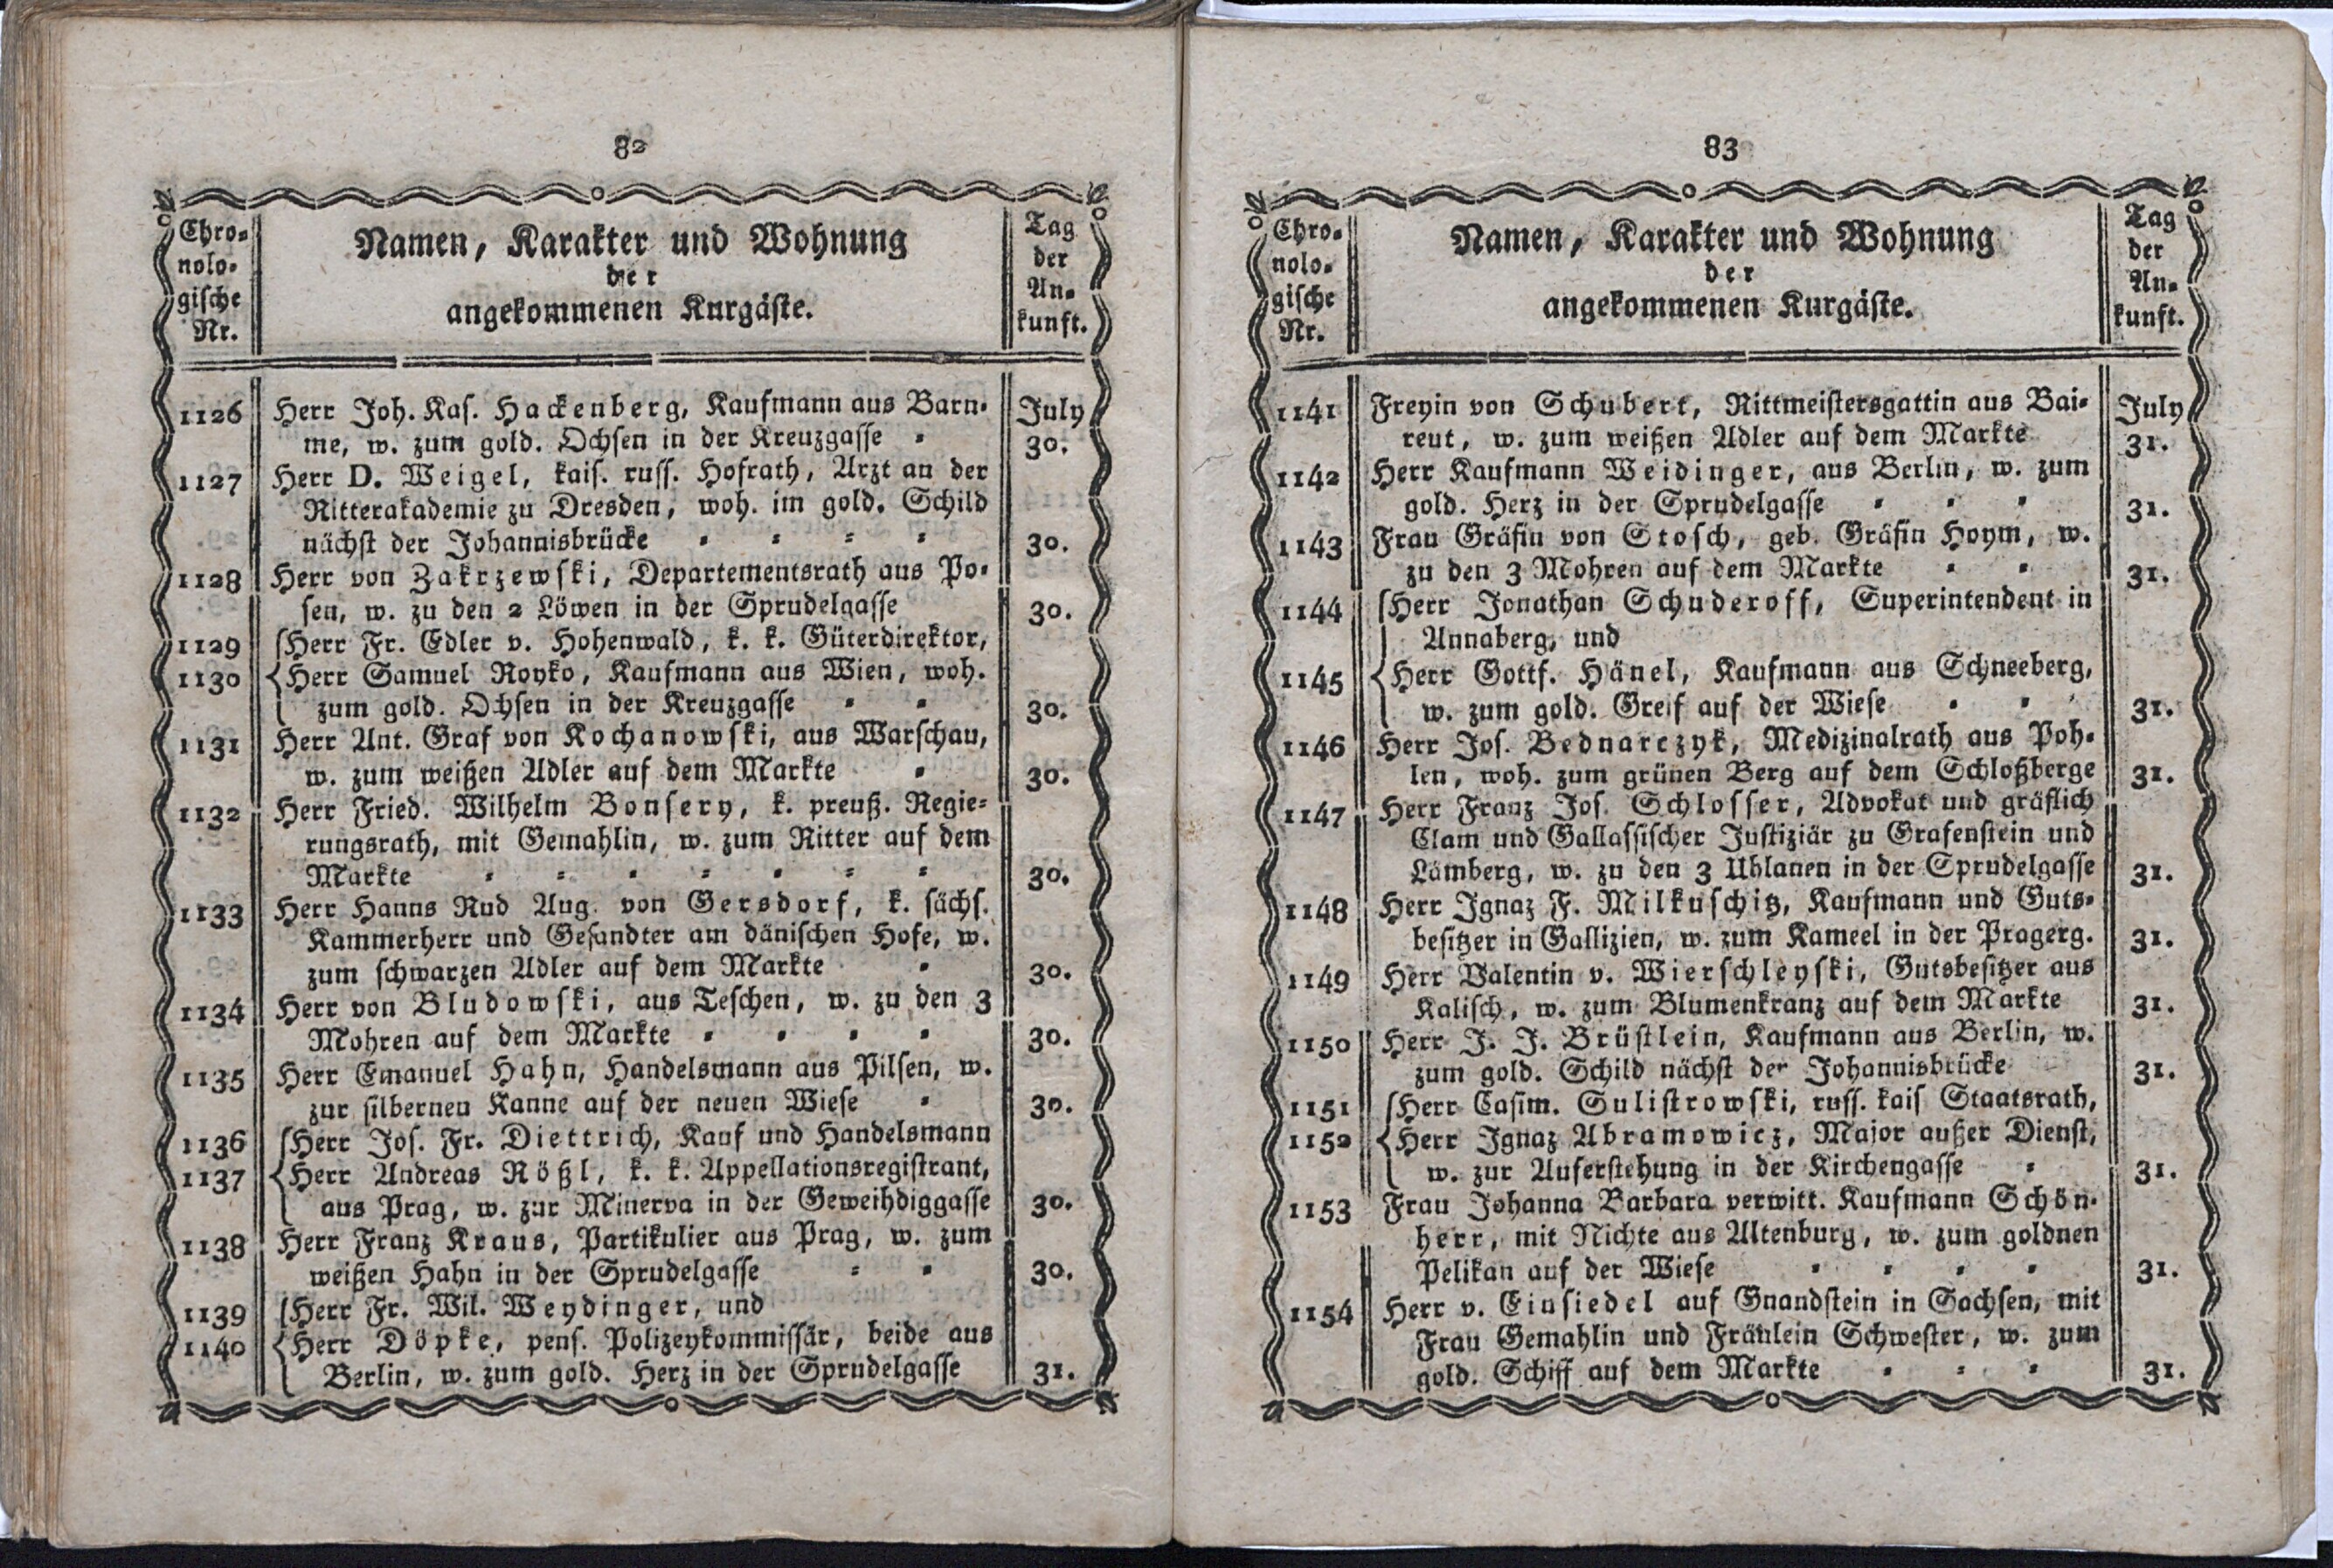 82
Chro-
nolo-
gische
Nr.
Namen, Karakter und Wohnung
der
angekommenen Kurgäste.
Tag
der
An-
kunft.
1126 Herr Joh. Kas. Hackenberg, Kaufmann aus Barn- July
me, w. zum gold. Ochsen in der Kreuzgasse = 30.
1127 Herr D. Weigel, kais. russ. Hofrath, Arzt an der
Ritterakademie zu Dresden, woh. im gold. Schild
nächst der Johannisbrücke = = = = 30.
1128 Herr von Zakrzewski, Departementsrath aus Po-
sen, w. zu den 2 Löwen in der Sprudelgasse 30.
1129 Herr Fr. Edler v. Hohenwald, k. k. Güterdirektor,
1130 Herr Samuel Royko, Kaufmann aus Wien, woh.
zum gold. Ochsen in der Kreuzgasse = = 30.
1131 Herr Ant. Graf von Kochanowski, aus Warschau,
w. zum weißen Adler auf dem Markte = 30.
1132 Herr Fried. Wilhelm Bonsery, k. preuß. Regie-
rungsrath, mit Gemahlin, w. zum Ritter auf dem
Markte = = = = = = = 30.
1133 Herr Hanns Rud Aug. von Gersdorf, k. sächs.
Kammerherr und Gesandter am dänischen Hofe, w.
zum schwarzen Adler auf dem Markte = 30.
1134 Herr von Bludowski, aus Teschen, w. zu den 3
Mohren auf dem Markte = = = = 30.
1135 Herr Emanuel Hahn, Handelsmann aus Pilsen, w.
zur silbernen Kanne auf der neuen Wiese = 30.
1136 Herr Jos. Fr. Diettrich, Kauf und Handelsmann
1137 Herr Andreas Rößl, k. k. Appellationsregistrant,
aus Prag, w. zur Minerva in der Geweihdiggasse 30.
1138 Herr Franz Kraus, Partikulier aus Prag, w. zum
weißen Hahn in der Sprudelgasse = = 30.
1139 Herr Fr. Wil. Weydinger, und
1140 Herr Döpke, pens. Polizeykommissär, beide aus
Berlin, w. zum gold. Herz in der Sprudelgasse 31.
83
Chro-
nolo-
gische
Nr.
Namen, Karakter und Wohnung
der
angekommenen Kurgäste.
Tag
der
An-
kunft.
1141 Freyin von Schubert, Rittmeistersgattin aus Bai- July
reut, w. zum weißen Adler auf dem Markte 31.
1142 Herr Kaufmann Weidinger, aus Berlin, w. zum
gold. Herz in der Sprudelgasse = = = 31.
1143 Frau Gräfin von Stosch, geb. Gräfin Hoym, w.
zu den 3 Mohren auf dem Markte = = 31.
1144 Herr Jonathan Schuderoff, Superintendent in
Annaberg, und
1145 Herr Gottf. Hänel, Kaufmann aus Schneeberg,
w. zum gold. Greif auf der Wiese = = = 31.
1146 Herr Jos. Bednarczyk, Medizinalrath aus Poh-
len, woh. zum grünen Berg auf dem Schloßberge 31.
1147 Herr Franz Jos. Schlosser, Advokat und gräflich
Clam und Gallassischer Justiziär zu Grafenstein und
Lämberg, w. zu den 3 Uhlanen in der Sprudelgasse 31.
1148 Herr Ignaz F. Milkuschitz, Kaufmann und Guts-
besitzer in Gallizien, w. zum Kameel in der Pragerg. 31.
1149 Herr Valentin v. Wierschleyski, Gutsbesitzer aus
Kalisch, w. zum Blumenkranz auf dem Markte 31.
1150 Herr J. J. Brüstlein, Kaufmann aus Berlin, w.
zum gold. Schild nächst der Johannisbrücke 31.
1151 Herr Casim. Sulistrowski, russ. kais Staatsrath,
1152 Herr Ignaz Abramowicz, Major außer Dienst,
w. zur Auferstehung in der Kirchengasse = 31.
1153 Frau Johanna Barbara verwitt. Kaufmann Schön-
herr, mit Nichte aus Altenburg, w. zum goldnen
Pelikan auf der Wiese = = = = 31.
1154 Herr v. Einsiedel auf Gnandstein in Sachsen, mit
Frau Gemahlin und Fräulein Schwester, w. zum
gold. Schiff auf dem Markte = = = 31.